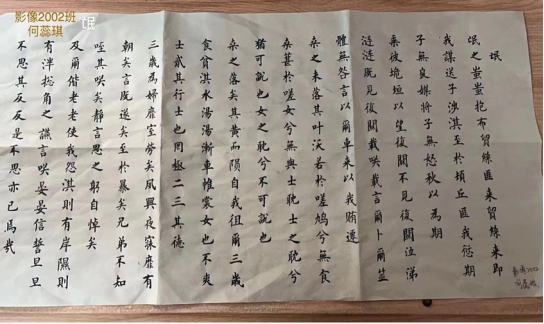 影像2002班
何蕊琪
氓
氓
氓之蚩蚩抱布貿絲匪來貿絲來即
我謀送子涉淇至於頓丘匪我愆期
子無良媒將子無怒秋以為期
乘彼垝垣以望復關不見復關泣涕
漣漣既見復關載咲載言爾卜爾筮
體無咎言以爾車來以我賄遷
桑之未落其叶沃若於嗟鳩兮無食
桑葚於嗟女兮無與士耽士之耽兮
猶可說也女之耽兮不可說也
桑之落矣其黃而隕自我徂爾三歲
食貧淇水湯湯漸車帷裳女也不爽
士貳其行士也罔極二三其德
三歲為婦靡室勞矣夙興夜寐靡有
朝矣言既遂矣至於暴矣兄弟不知
咥其咲矣靜言思之躬自悼矣
及爾偕老老使我怨淇則有岸隰則
有泮總角之讌言咲晏晏信誓旦旦
不思其反反是不思亦已焉哉
影像2002
何蕊琪